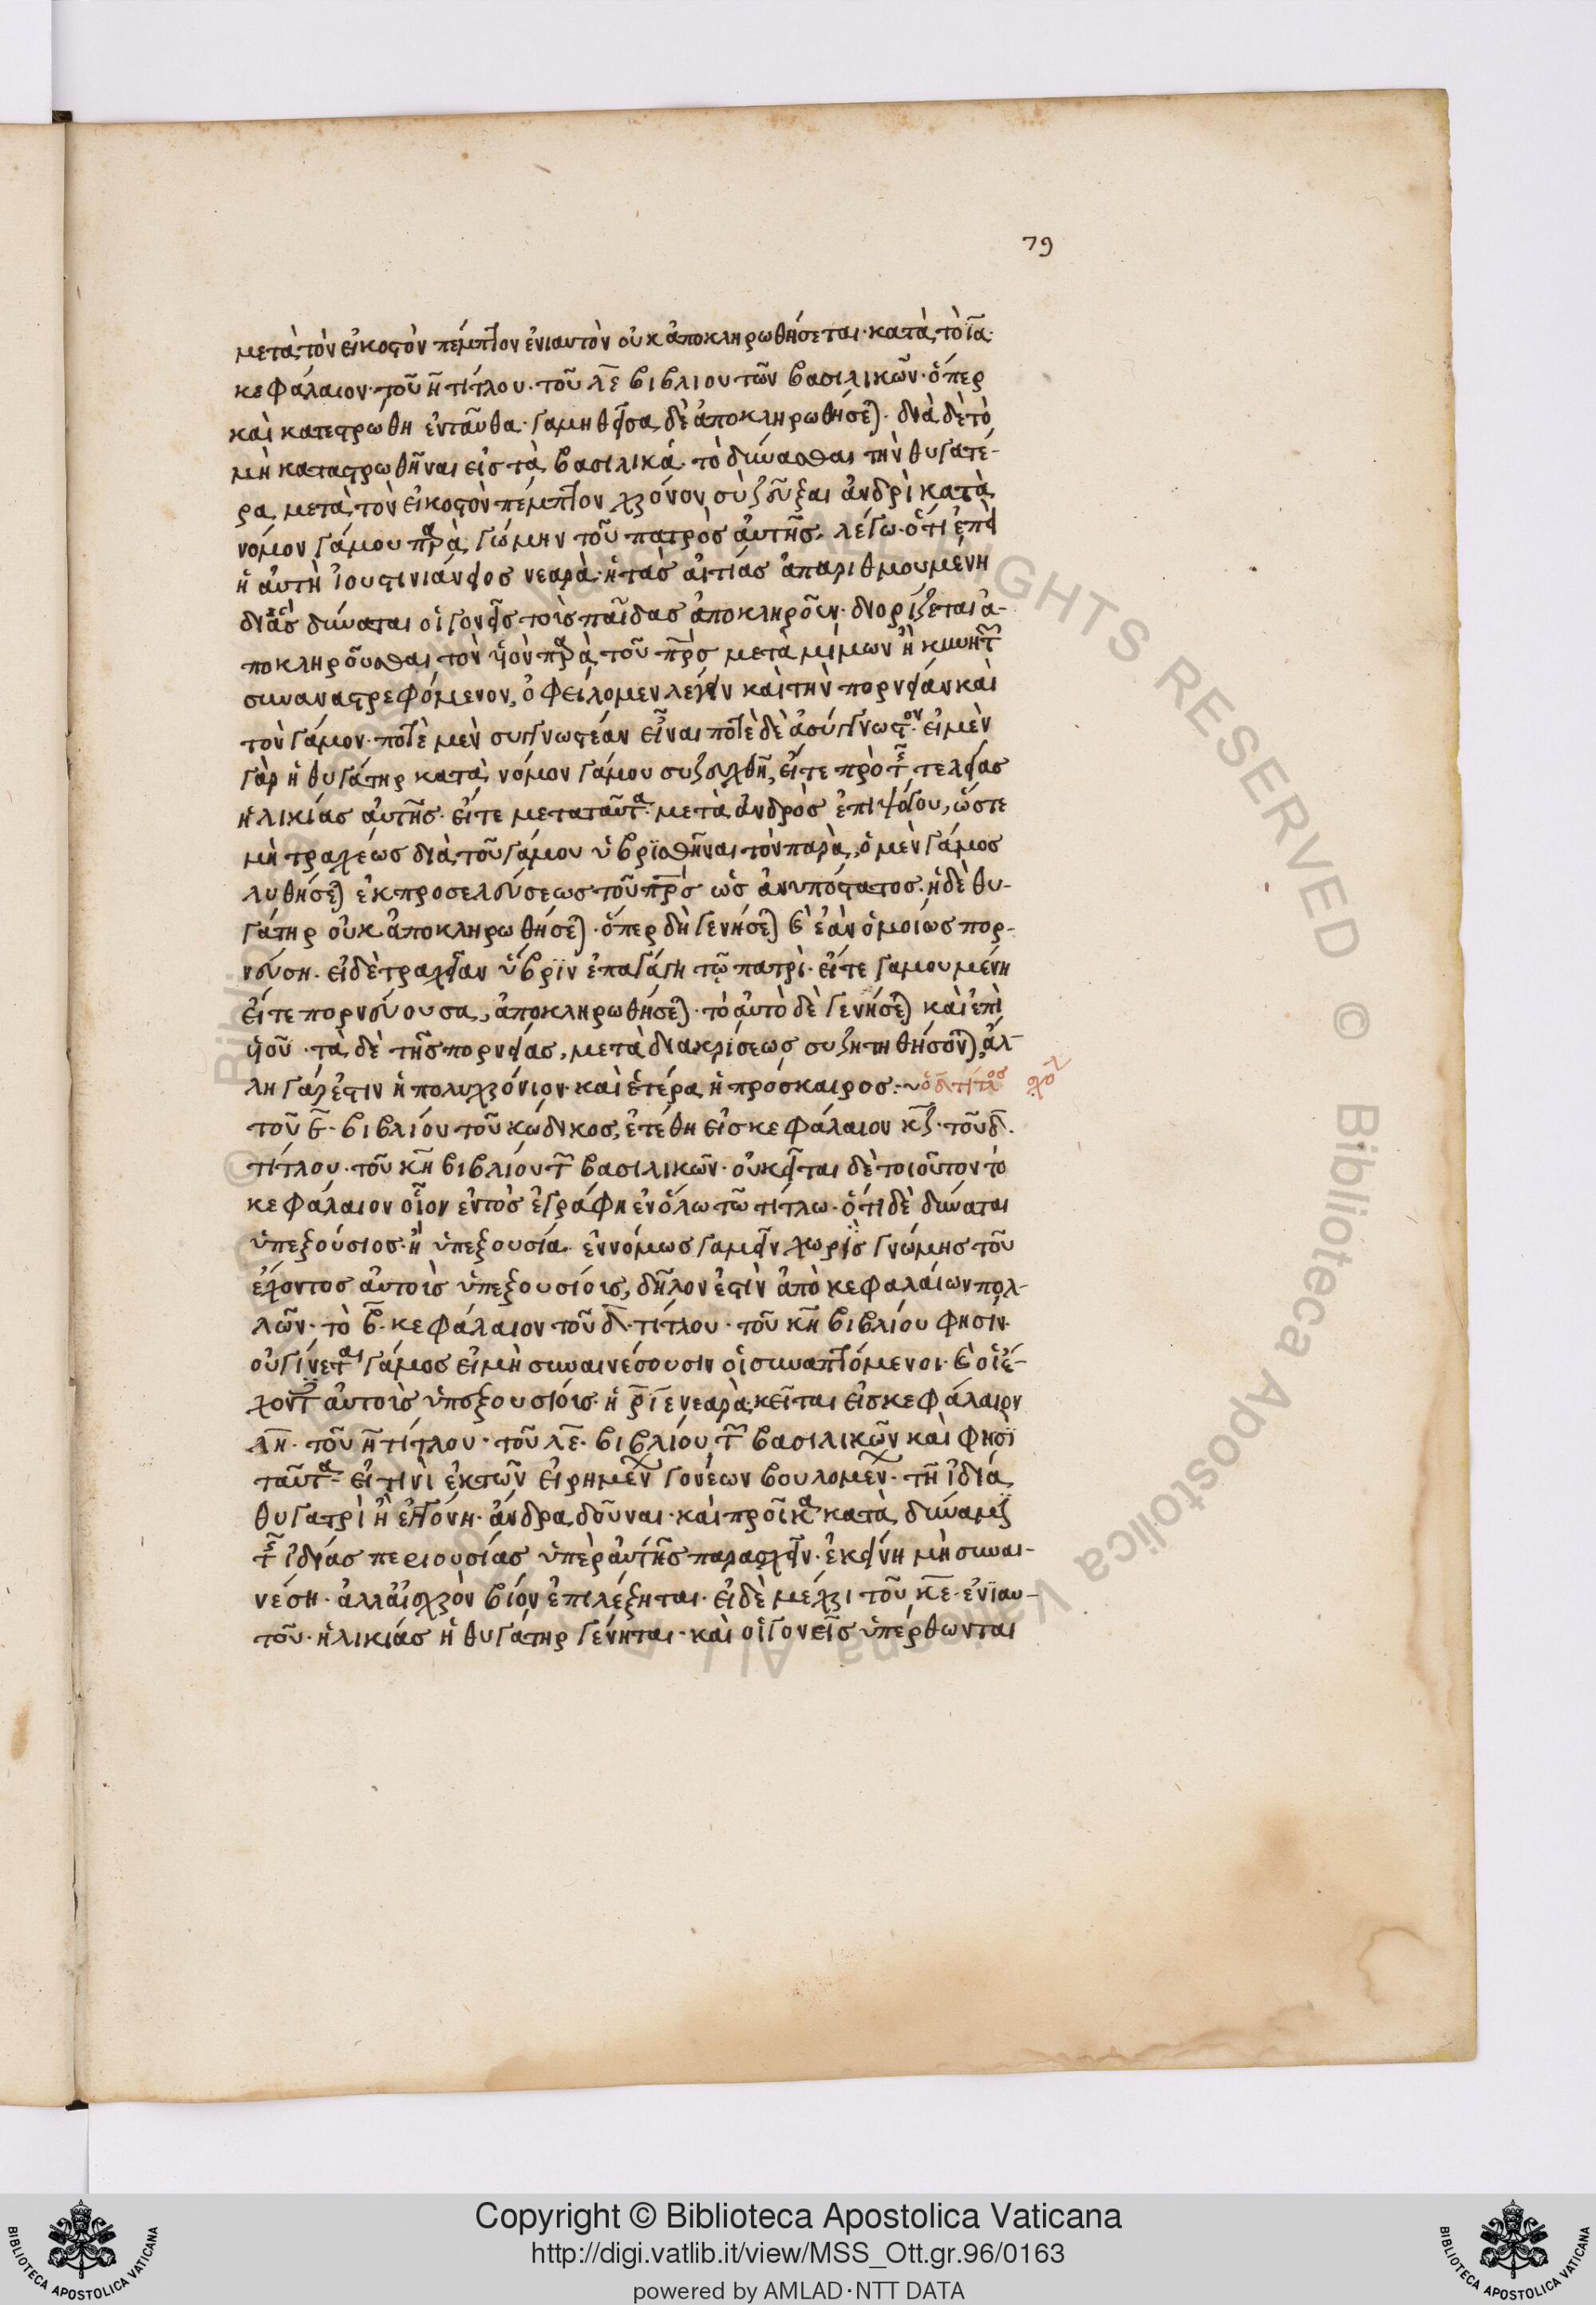 79
μετὰ τὸν εἰκοστὸν πέμπτον ἐνιαυτὸν οὐκ ἀποκληρωθήσεται· κατὰ τὸ ι̅α̅·
κεφάλαιον· τοῦ η̅ τίτλου· τοῦ λ̅ε̅ βιβλίου τῶν βασιλικῶν· ὅπερ
καὶ κατεστρώθη ἐνταῦθα· γαμηθεῖσα δὲ ἀποκληρωθήσεται· διὰ δὲ τὸ
μὴ καταστρωθῆναι εἰς τὰ βασιλικά· τὸ δύνασθαι τὴν θυγατέ-
ρα μετὰ τὸν εἰκοστὸν πέμπτον χρόνον συζεῦξαι ἀνδρὶ κατὰ
νόμον γάμου παρὰ γνώμην τοῦ πατρὸς αὐτῆς· λέγω· ὅτι ἐπεὶ
ἡ αὐτὴ ἰουστινιάνειος νεαρὰ· ἡ τὰς αἰτίας ἀπαριθμουμένη
δι' ἃς δύναται οἱ γονεῖς τοὺς παῖδας ἀποκληροῦν· διορίζεται ἀ-
ποκληροῦσθαι τὸν υἱὸν παρὰ τοῦ π̅ρ̅ς μετὰ μίμων ἢ κυνηγῶν
συναναστρεφόμενον, ὀφείλομεν λέγειν καὶ τὴν πορνείαν καὶ
τὸν γάμον· ποτὲ μὲν συγγνωστέαν εἶναι ποτὲ δὲ ἀσύγγνωστον· εἰ μὲν
γὰρ ἡ θυγάτηρ κατὰ νόμον γάμου συζευχθῆ, εἴτε πρὸ τῆς τελείας
ἡλικίας αὐτῆς· εἴτε μεταταῦτα· μετὰ ἀνδρὸς ἐπιψόγου, ὥστε
μὴ τραχέως διὰ τοῦ γάμου ὑβρισθῆναι τὸν παρὰ, ὁ μὲν γάμος
λυθήσεται ἐκ προσελεύσεως τοῦ π̅ρ̅ς ὡς ἀνυπόστατος· ἡ δὲ θυ-
γάτηρ οὐκ ἀποκληρωθήσεται· ὅπερ δὴ γενήσεται καὶ ἐὰν ὁμοίως πορ-
νεύση· εἰ δὲ τραχεῖαν ὕβριν ἐπαγάγη τῷ πατρὶ· εἴτε γαμουμένη
εἴτε πορνεύουσα, ἀποκληρωθήσεται· τὸ αὐτὸ δὲ γενήσεται καὶ ἐπὶ
υἱοῦ· τὰ δὲ τῆς πορνείας, μετὰ διακρίσεως συζητηθήσονται, ἄλ-
λη γάρ ἐστιν ἡ πολυχρόνιον· καὶ ἑτέρα ἡ πρόσκαιρος:~ ὁ δ̅ τίτλος
σχολ
τοῦ ε̅· βιβλίου τοῦ κώδικος, ἐτέθη εἰς κεφάλαιον κ̅ζ̅· τοῦ δ̅·
τίτλου· τοῦ κ̅η̅ βιβλίου τῶν βασιλικῶν· οὐ κεῖται δὲ τοιοῦτον τὸ
κεφάλαιον οἷον ἐντὸς ἐγράφη ἐν ὅλω τῶ τίτλω· ὅτι δὲ δύναται
ὑπεξούσιος· ἢ ὑπεξουσία ἐννόμως γαμεῖν χωρὶς γνώμης τοῦ
ἔχοντος αὐτοὺς ὑπεξουσίους, δῆλον ἐστὶν ἀπὸ κεφαλαίων πολ-
λῶν· τὸ β̅· κεφάλαιον τοῦ δ̅· τίτλου· τοῦ κ̅η̅ βιβλίου φησὶν·
οὐ γίνεται γάμος εἰ μὴ συναινέσουσιν οἱ συναπτόμενοι· καὶ οἱ ἔ-
χοντες αὐτοὺς ὑπεξουσίους· ἡ ρ̅ι̅ε̅ νεαρὰ· κεῖται εἰς κεφάλαιον
λ̅η̅· τοῦ η̅ τίτλου· τοῦ λ̅ε̅· βιβλίου τῶν βασιλικῶν καὶ φησὶ
ταῦτα· εἴ τινι ἐκ τῶν εἰρημένων γονέων βουλομένων· τῆ ἰδία
θυγατρὶ ἢ ἐγγόνη· ἄνδρα δοῦναι· καὶ προῖκα κατὰ δύναμιν
τῆς ἰδίας περιουσίας ὑπὲρ αὐτῆς παρασχεῖν· ἐκείνη μὴ συναι-
νέση· ἀλλ' αἰσχρὸν βίον ἐπιλέξηται· εἰ δὲ μέχρι τοῦ κ̅ε̅· ἐνιαυ-
τοῦ· ἡλικίας ἡ θυγάτηρ γένηται· καὶ οἱ γονεῖς ὑπέρθωνται
Copyright © Biblioteca Apostolica Vaticana
http://digi.vatlib.it/view/MSS_Ott.gr.96/0163
powered by AMLAD·NTT DATA